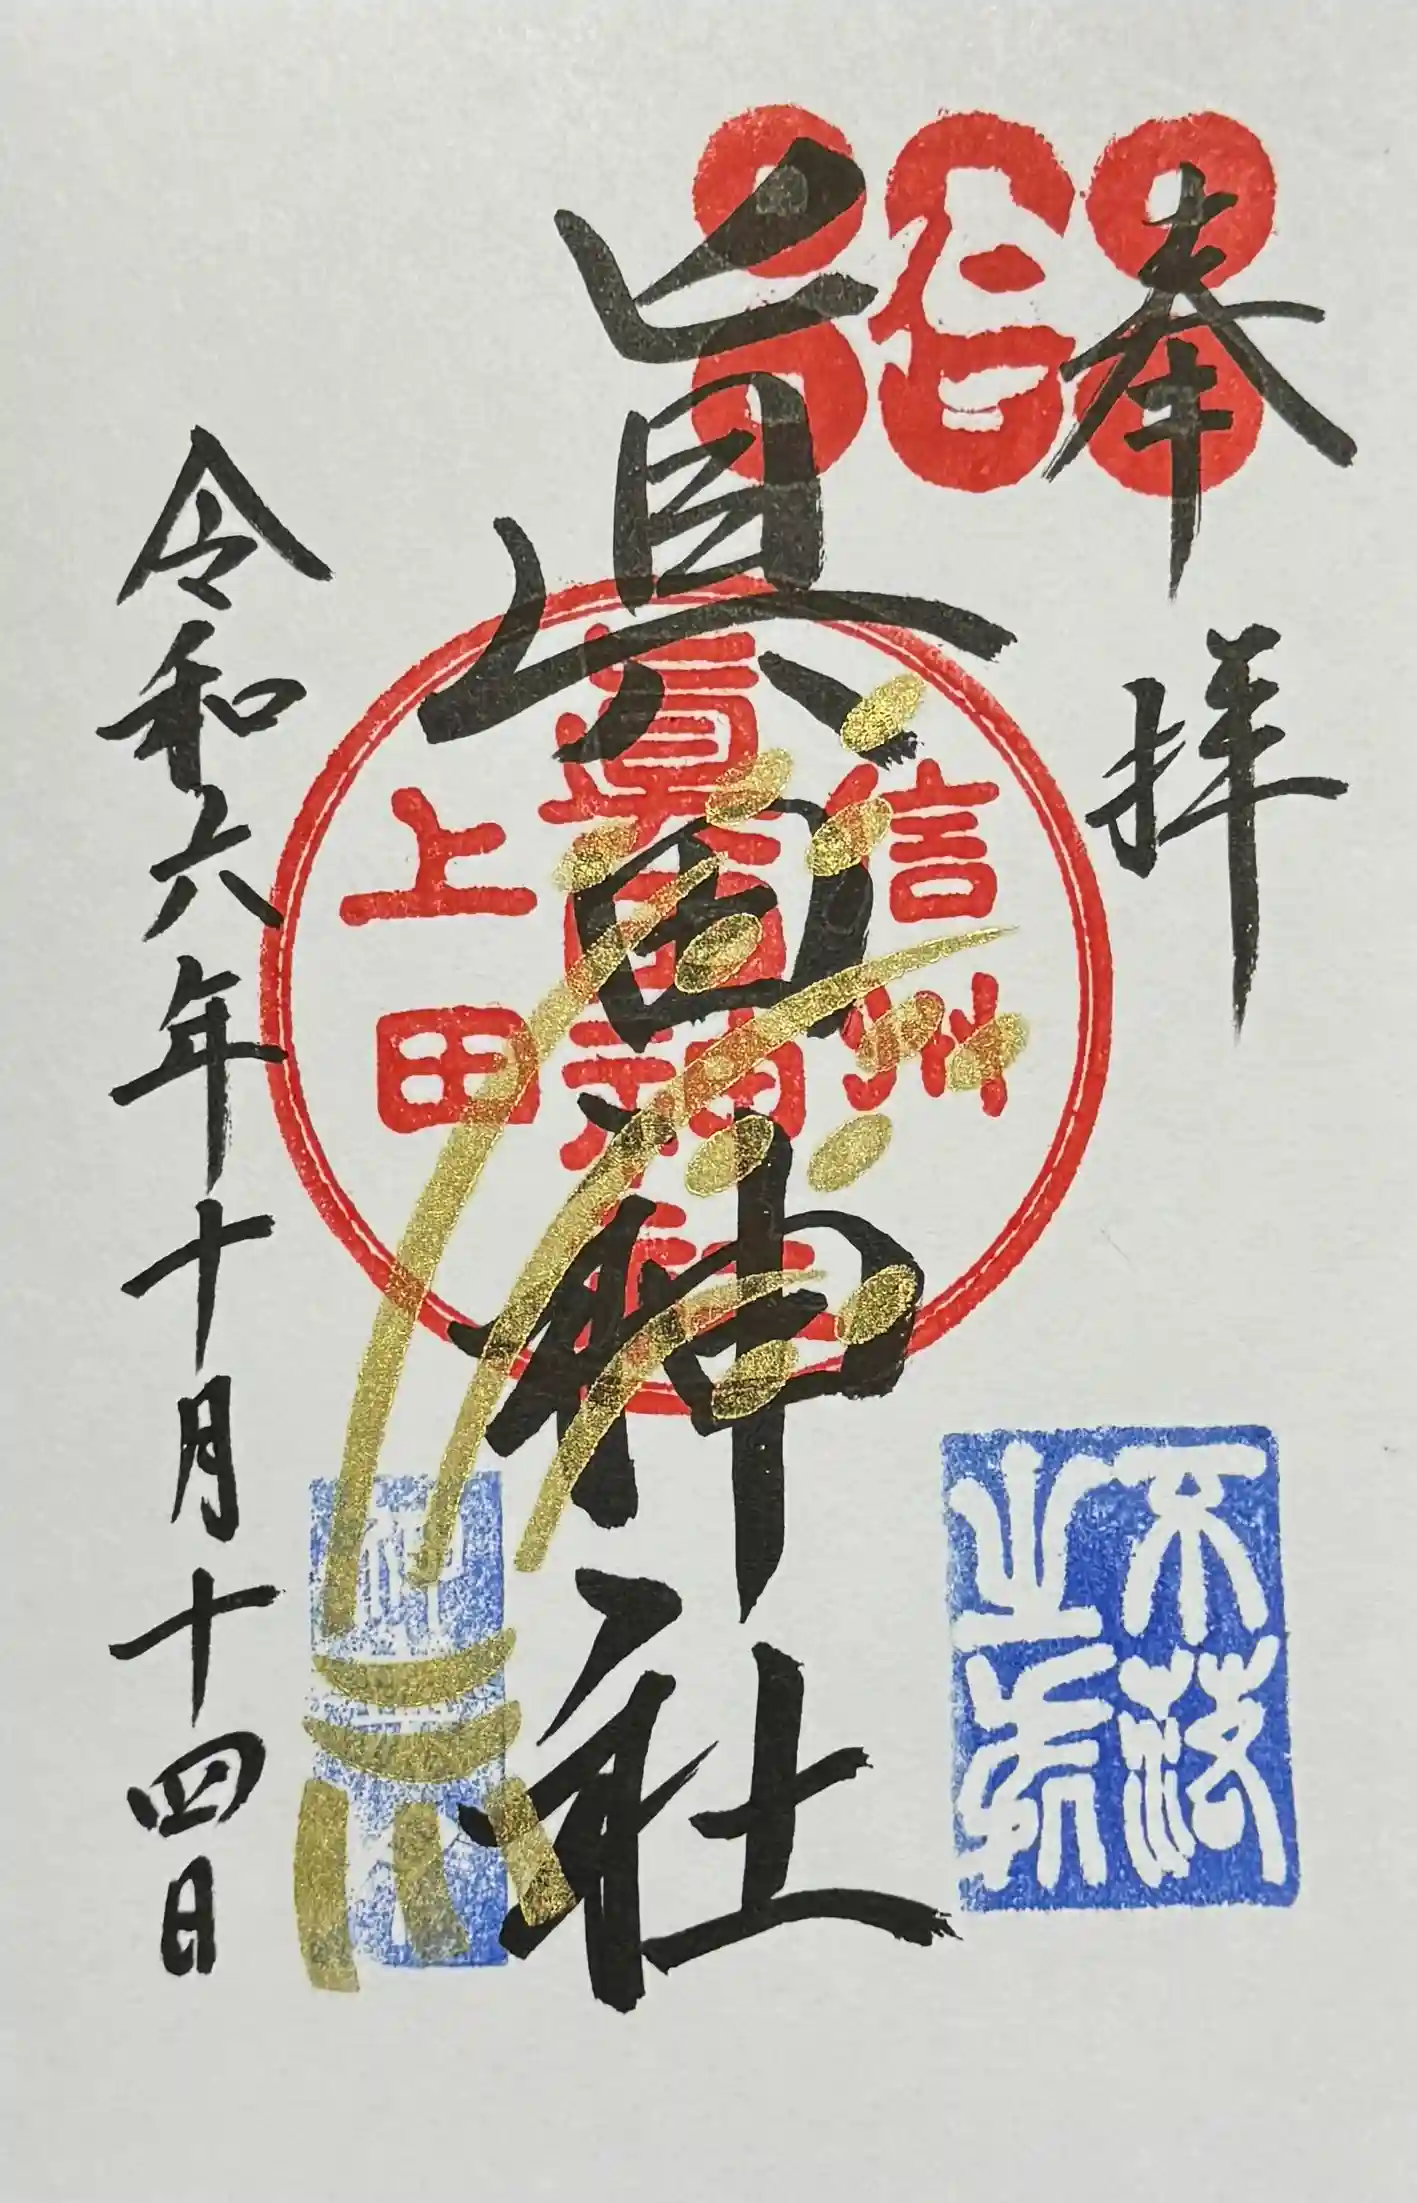 奉拝
眞田神社
信州
眞田神社
上田
不落之城
令和六年十月十四日